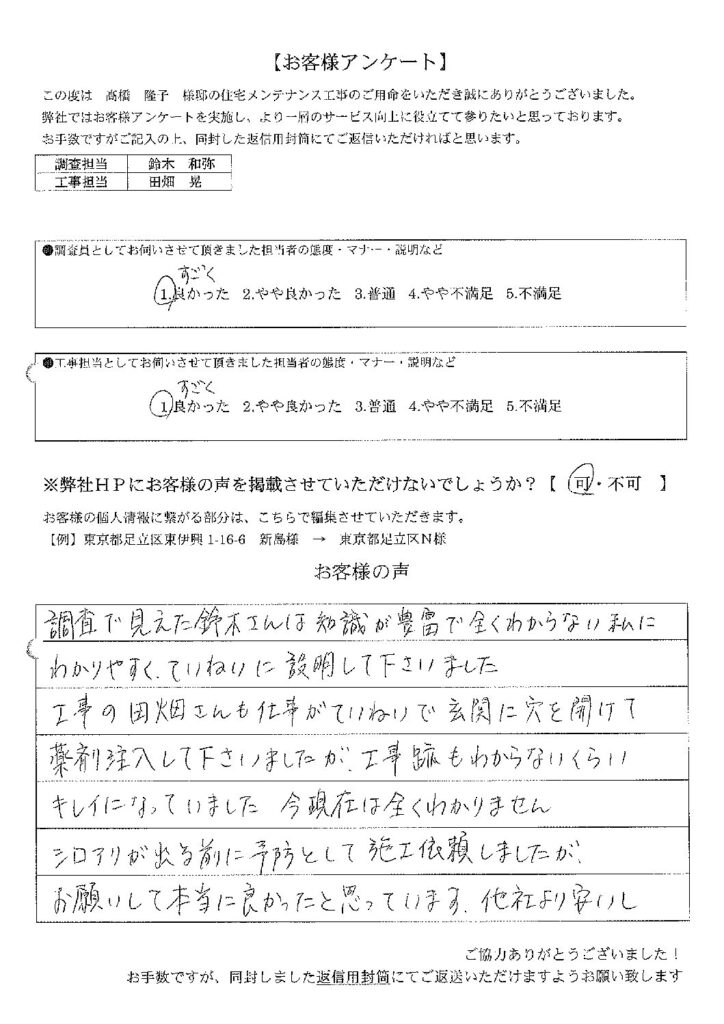 【お客様アンケート】
この度は　髙橋　隆子　様邸の住宅メンテナンス工事のご用命をいただき誠にありがとうございました。
弊社ではお客様アンケートを実施し、より一層のサービス向上に役立てて参りたいと思っております。
お手数ですがご記入の上、同封した返信用封筒にてご返信いただければと思います。
調査担当　鈴木　和弥
工事担当　田畑　晃
●調査員としてお伺いさせて頂きました担当者の態度・マナー・説明など
すごく
1.良かった　2.やや良かった　3.普通　4.やや不満足　5.不満足
●工事担当としてお伺いさせて頂きました担当者の態度・マナー・説明など
すごく
1.良かった　2.やや良かった　3.普通　4.やや不満足　5.不満足
※弊社ＨＰにお客様の声を掲載させていただけないでしょうか？【　可・不可　】
お客様の個人情報に繋がる部分は、こちらで編集させていただきます。
【例】東京都足立区東伊興 1-16-6　新島様　→　東京都足立区Ｎ様
お客様の声
調査で見えた鈴木さんは知識が豊富で全くわからない私に
わかりやすく、ていねいに説明して下さいました
工事の田畑さんも仕事がていねいで玄関に穴を開けて
薬剤注入して下さいましたが、工事跡もわからないくらい
キレイになっていました　今現在は全くわかりません
シロアリが出る前に予防として施工依頼しましたが、
お願いして本当に良かったと思っています、他社より安いし
ご協力ありがとうございました！
お手数ですが、同封しました返信用封筒にてご返送いただけますようお願い致します